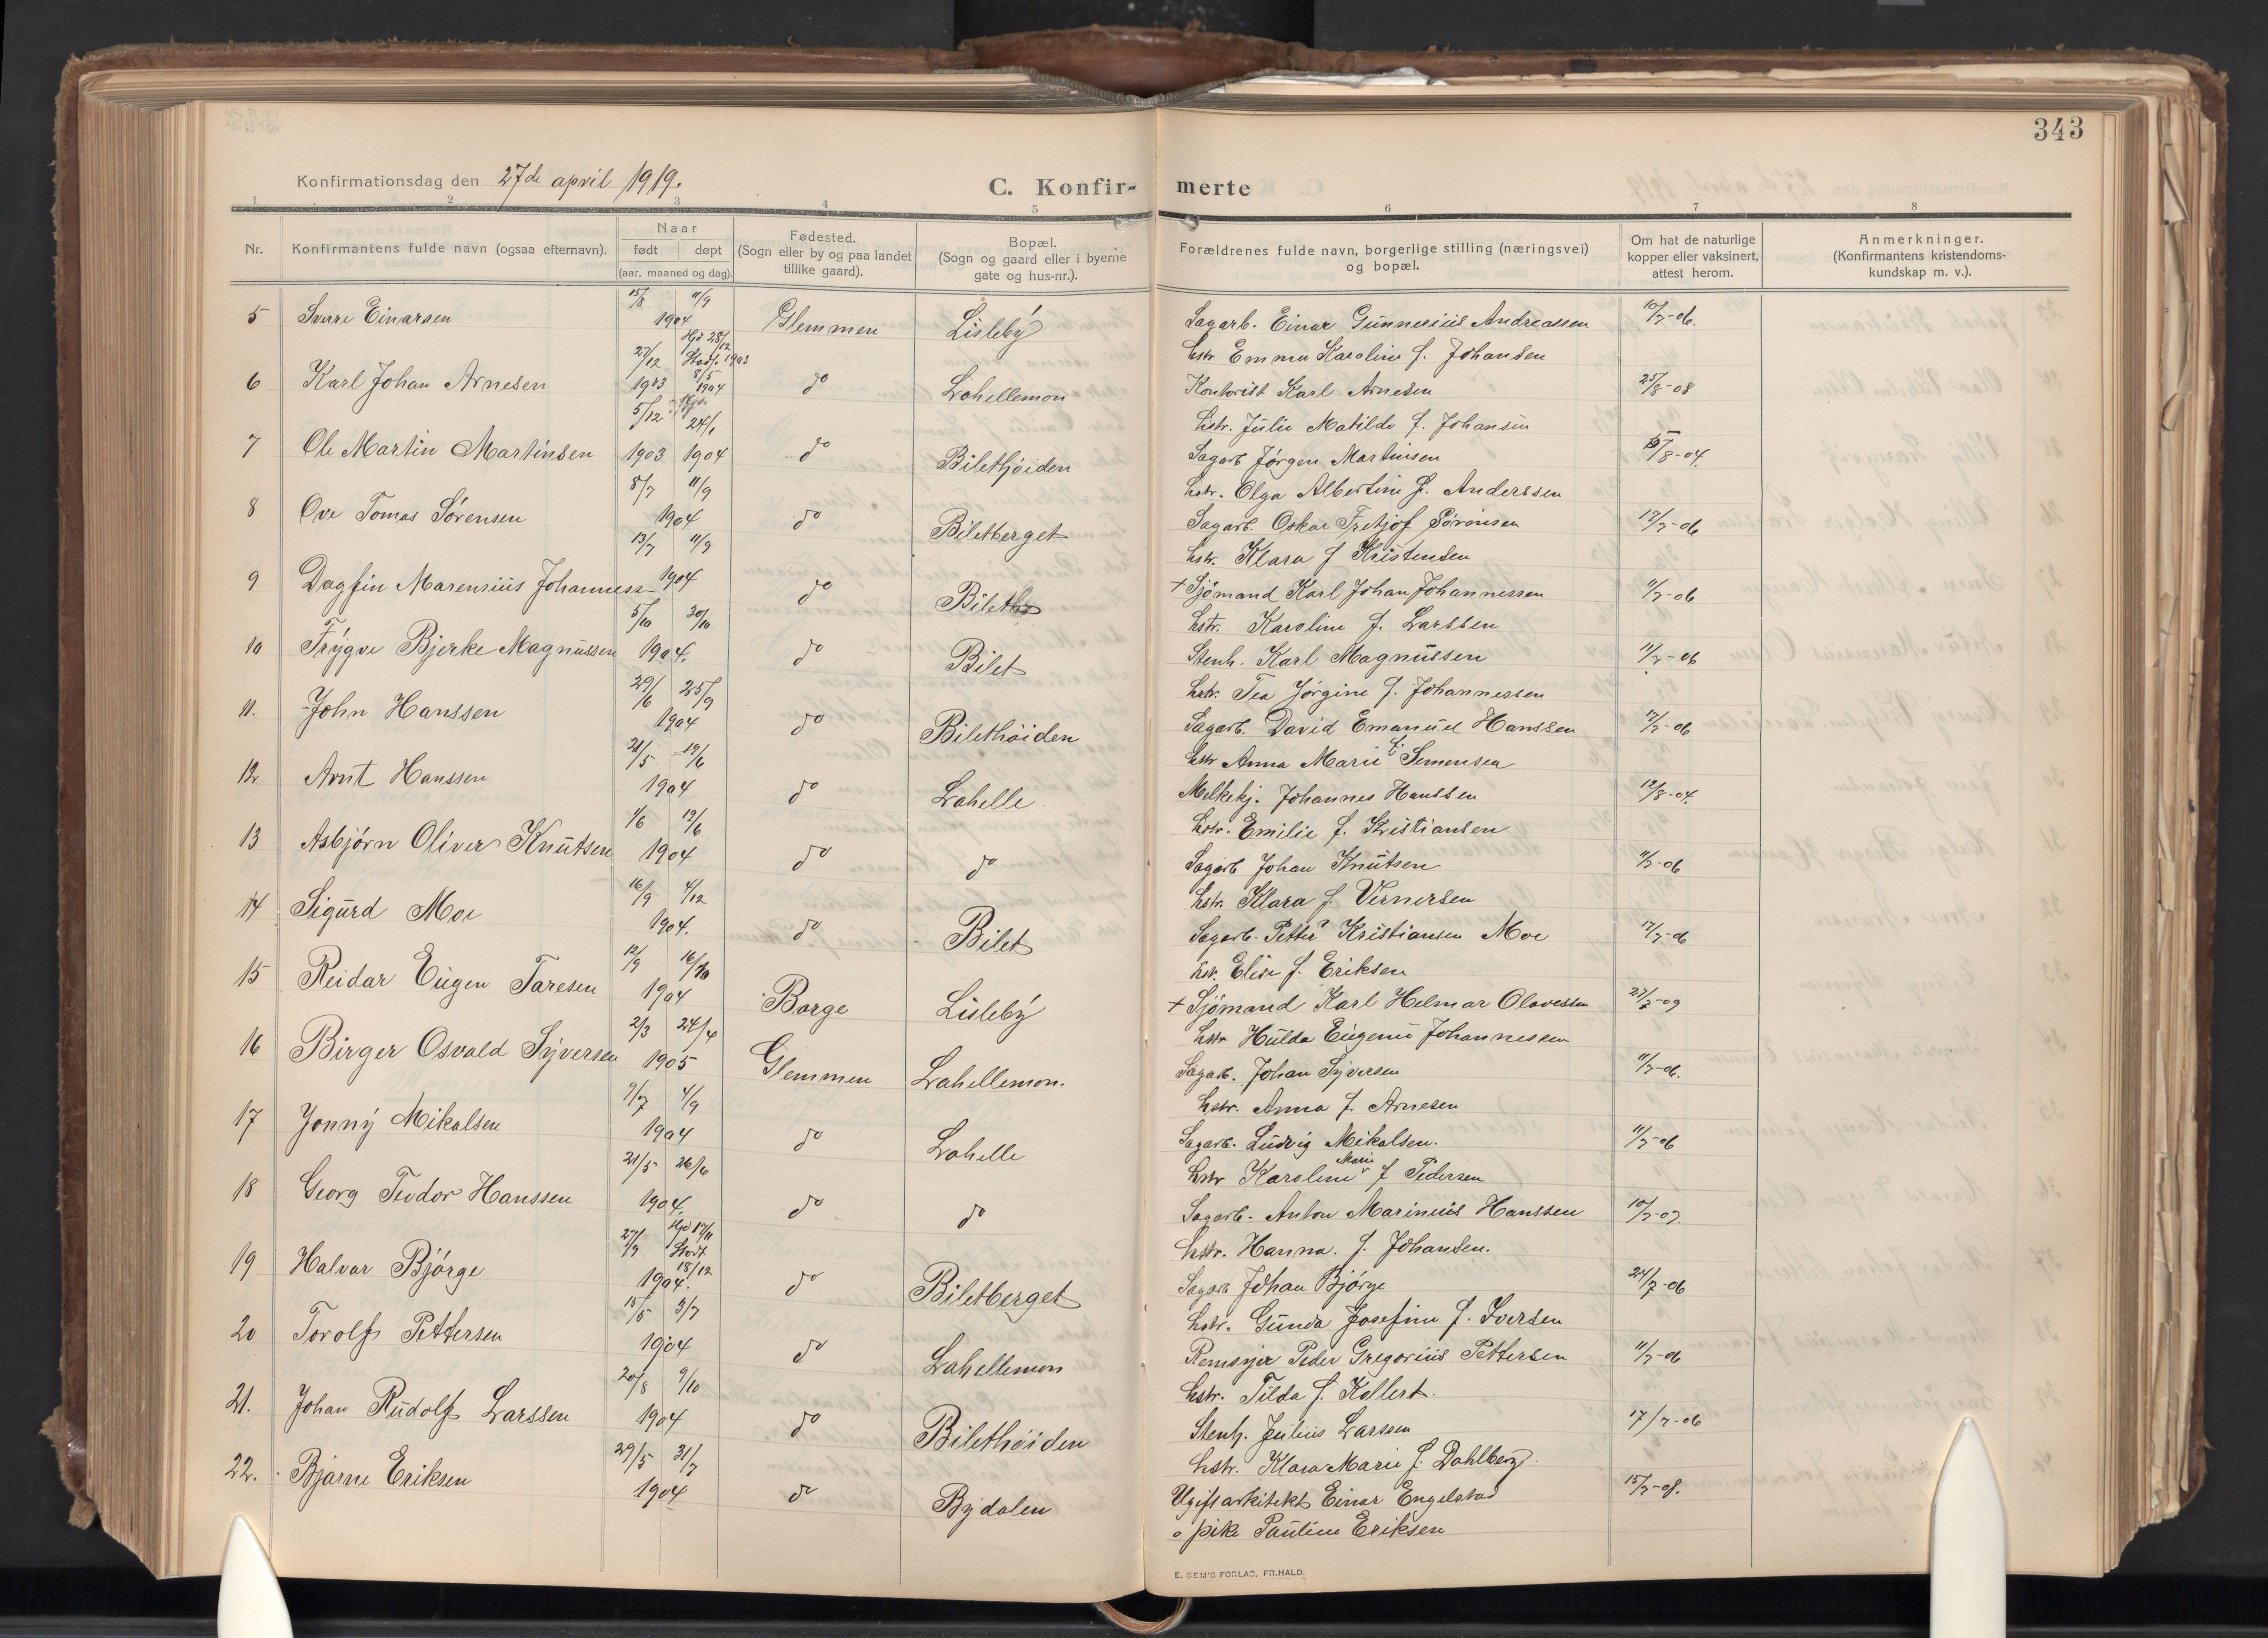 343
Konfirmationsdag den 27de april 1919.
C. Konfir- merte
1 2 3 4 5 6 7 8
Nr.
Konfirmantens fulde navn (ogsaa efternavn).
Naar
født døpt
(aar, maaned og dag).
Fødested.
(Sogn eller by og paa landet
tillike gaard).
Bopæl.
(Sogn og gaard eller i byerne
gate og hus-nr.).
Forældrenes fulde navn, borgerlige stilling (næringsvei)
og bopæl.
Om hat de naturlige
kopper eller vaksinert,
attest herom.
Anmerkninger.
(Konfirmantens kristendoms-
kundskap m. v.).
5 Sverre Einarsen 15/8 11/9 1904 Glemmen Lisleby Sagarb. Einar Gunnerius Andreassen 10/7-06.
hstr Emma Karoline f. Johansen
6 Karl Johan Arnesen 27/12 1903 Hjd 28/12 1903 Stadf. 8/5 1904 do Lahellemon Kontorist Karl Arnesen 25/8-08
hstr. Julie Matilde f. Johansen
7 Ole Martin Martinsen 5/12 1903 24/1 1904 do Bilethøiden Sagarb Jørgen Martinsen 15/8-04.
hstr. Olga Albertine f. Anderssen
8 Ove Tomas Sørensen 8/7 11/9 1904 do Biletberget Sagarb. Oskar Fretjof Sørensen 17/7-06
hstr. Klara f Kristensen
9 Dagfin Marensius Johanness 13/7 11/9 1904 do Bilet + Sjømand Karl Johan Johannessen 11/7-06
hstr. Karoline f. Larssen
10 Trygve Bjerke Magnussen 5/10 30/10 1904. do Bilet Stenh. Karl Magnussen 11/7-06
hstr. Tea Jørgine f. Johannessen
11. John Hanssen 29/6 25/9 1904 do Bilethøiden Sagarb. David Emanuel Hanssen 17/7-06
hstr Anna Marie f. Simensen
12 Arnt Hanssen 21/5 19/6 1904 do Lahelle Melkekj. Johannes Hanssen 12/8-04.
hstr. Emilie f. Kristiansen
13 Asbjørn Oliver Knutsen 1/6 19/6 1904 do do Sagarb Johan Knutsen 11/7-06
hstr. Klara f. Vernersen
14 Sigurd Moe 16/9 4/12 1904. do Bilet Sagarb. Petter Kristiansen Moe 17/7-06
hstr. Elise f. Eriksen
15 Reidar Eugen Taresen 12/9 16/10 1904 Borge Lisleby + Sjømand Karl Helmar Olavessen 27/7-09
hstr Hulda Eugenie Johannessen
16 Birger Osvald Syversen 2/3 24/4 1905 Glemmen Lahellemon. Sagarb. Johan Syversen 11/7-06.
hstr. Anna f. Arnesen
17 Jonny Mikalsen 9/7 4/9 1904 do Lahelle Sagarb. Ludvig Mikalsen. 11/7-06
hstr Karoline Marie f Pedersen
18 Georg Teodor Hanssen 21/5 26/6 1904. do do Sagarb. Anton Marinius Hanssen 10/7-07.
hstr. Hanna. f. Johansen.
19 Halvar Bjørge 27/9 Hjd 17/11 Stadf 18/12 1904. do Biletberget Sagarb Johan Bjørge 24/7-06
hstr. Gunda Josefine f. Iversen
20 Torolf Pettersen 15/5 3/7 1904 do Lahellemon Remsyer Peder Gregorius Pettersen 11/7-06
hstr. Tilda f. Kollert.
21. Johan Rudolf Larssen 20/8 9/10 1904 do Bilethøiden Stenh. Julius Larssen 17/7-06
hstr. Klara Marie f. Dahlberg.
22. Bjarne Eriksen 29/5 31/7 1904 do Bydalen Ugift arkitekt Einar Engelstad 15/7-08.
o pike Pauline Eriksen
E. SEM'S FORLAG, FR.HALD.